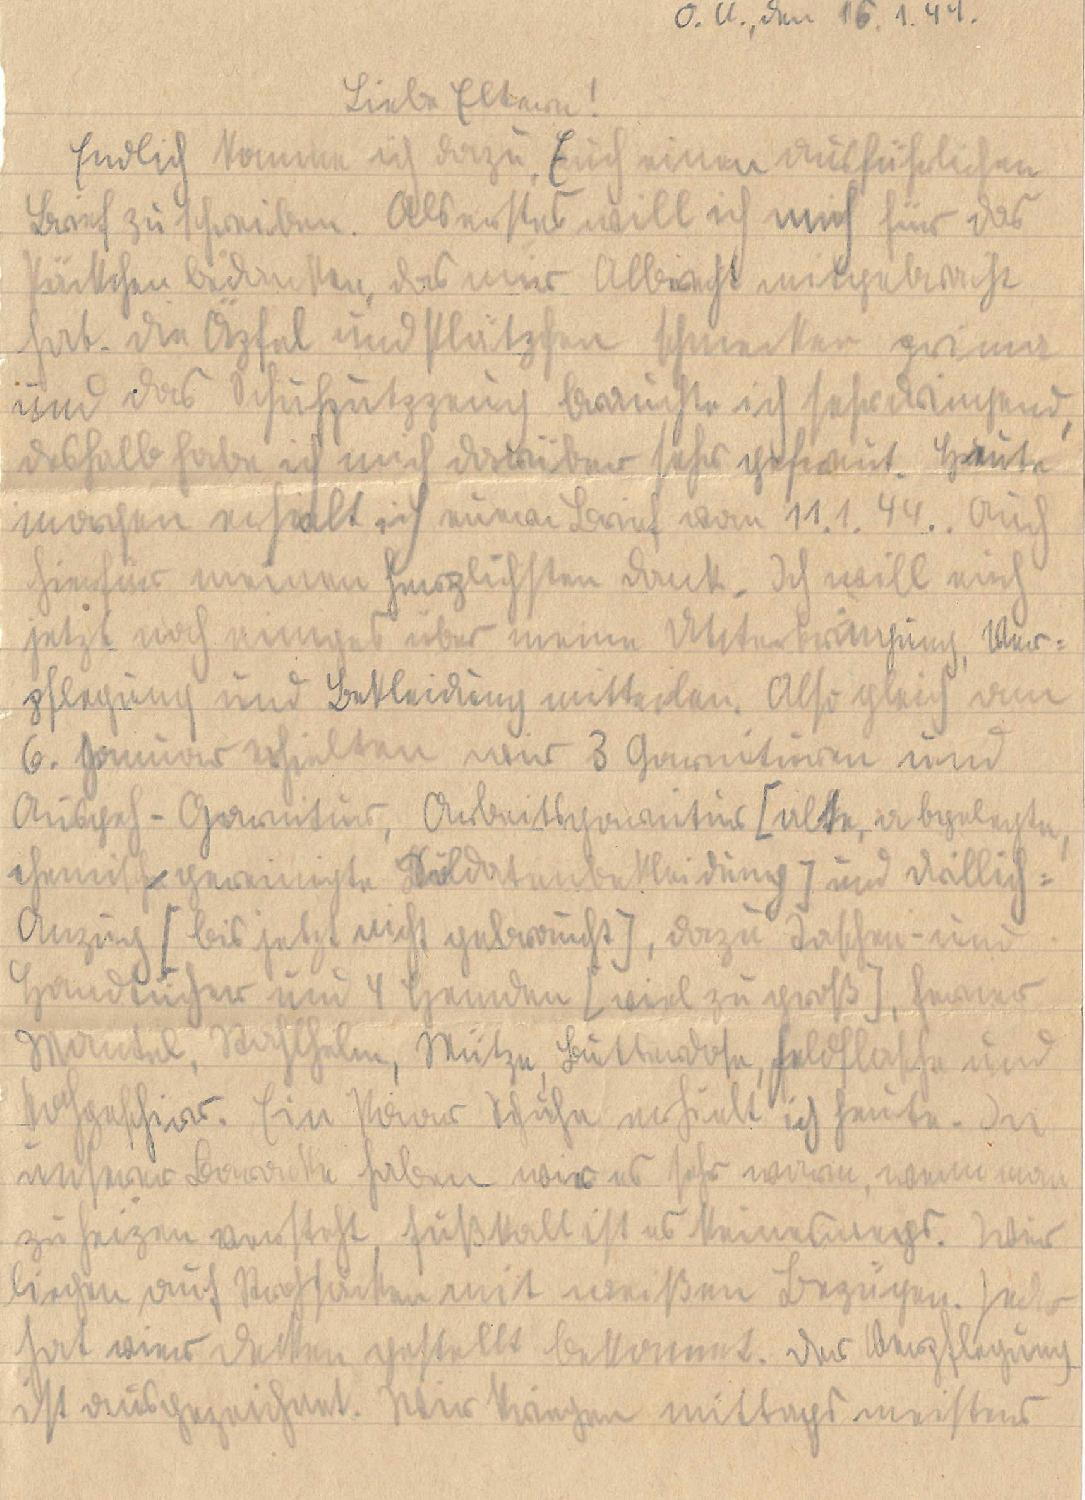 O. U., den 16. 1. 44.
Liebe Eltern!
Endlich komme ich dazu, Euch einen ausführlichen
Brief zu schreiben. Als erstes will ich mich für das
Päckchen bedanken, das mir Albrecht mitgebracht
hat. Die Äpfel und Plätzchen schmecken prima
und das Schuhputzzeug brauchte ich sehr dringend,
deshalb habe ich mich darüber sehr gefreut. Heute
morgen erhielt ich euren Brief vom 11. 1. 44.. Auch
hierfür meinen herzlichsten Dank. Ich will euch
jetzt noch einiges über meine Unterbringung, Ver=
pflegung und Bekleidung mitteilen. Also gleich am
6. Januar erhielten wir 3 Garnituren und
Ausgeh-Garnitur, Arbeitsgarnitur [alte, abgelegte,
chemisch gereinigte Soldatenbekleidung] und Drillich=
Anzug [bis jetzt nicht gebraucht], dazu Taschen- und
Handtücher und 4 Hemden [viel zu groß], ferner
Mantel, Stahlhelm, Mütze, Butterdose, Feldflasche und
Kochgeschirr. Ein Paar Schuhe erhielt ich heute. In
unserer Baracke haben wir es sehr warm, wenn man
zu heizen versteht, fußkalt ist es keineswegs. Wir
liegen auf Strohsäcken mit weißen Bezügen. Jeder
hat vier Decken gestellt bekommt. Der Verpflegung
ist ausgezeichnet. Wir kriegen mittags meistens